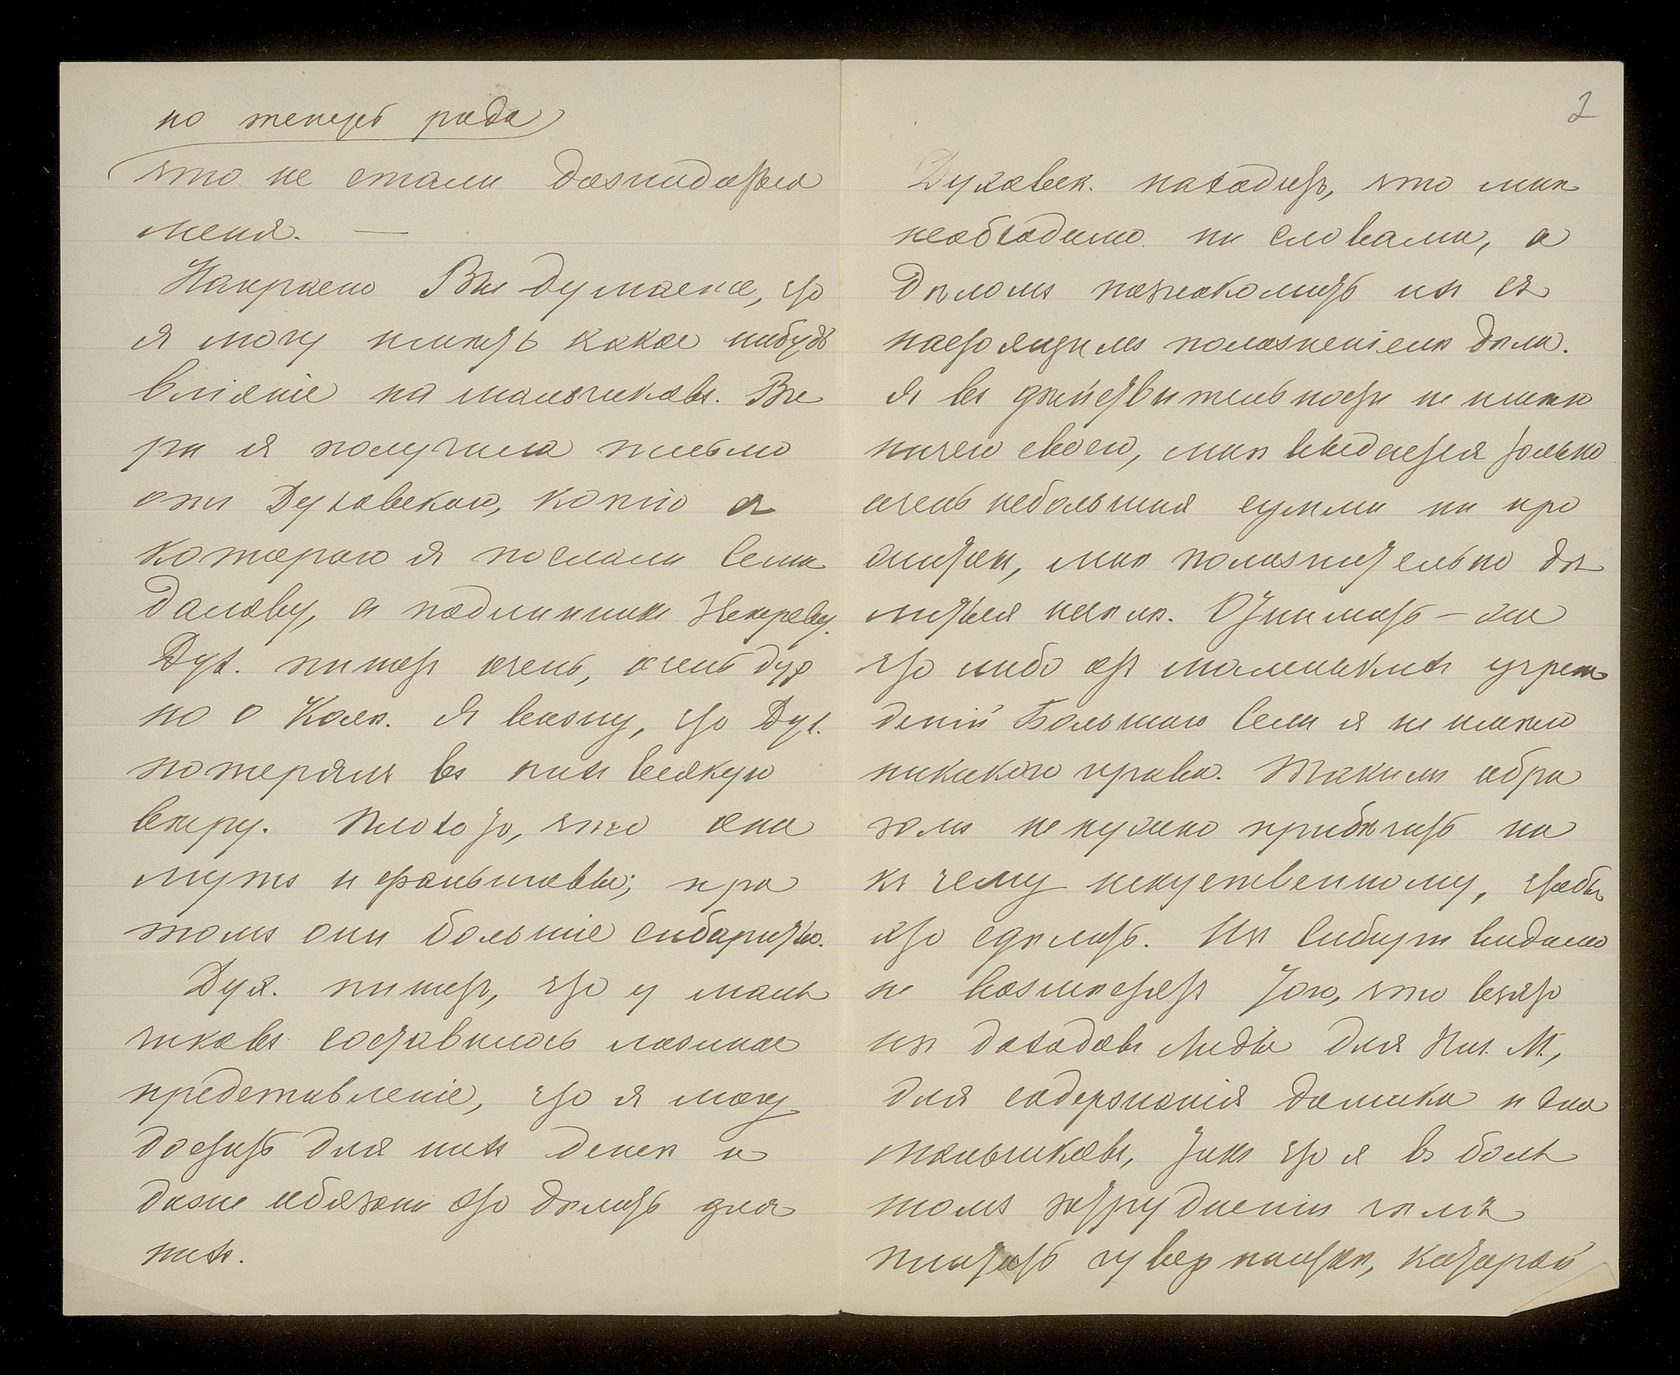 но теперь рада
что не стали дожидаться
меня. —
Напрасно Вы думаете, что
я могу имѣть какое нибудь
вліяніе на мальчиковъ. Вче
ра я получила письмо
отъ Духовскаго, копію съ
котораго я послала Семи
далову, а подлинникъ
Дух. пишетъ очень, очень дур
но о Колѣ. Я вижу, что Дух.
потерялъ въ нихъ всякую
вѣру. Плохо то, что они
лгутъ и фальшивы; при
томъ они большіе сибариты.
Дух. пишетъ, что у маль
чиковъ составилось ложное
представленіе, что я могу
достать для нихъ денегъ и
даже обязана это дѣлать для
нихъ.
2
Духовск. находитъ, что мнѣ
необходимо не словами, а
дѣломъ познакомить ихъ съ
настоящимъ положеніемъ дѣла.
Я въ дѣйствительности не имѣю
ничего своего, мнѣ выдается только
очень небольшая сумма на про
житокъ, мнѣ положительно дѣ
литься нечѣмъ. Отнимать — же
что либо отъ маленькихъ учреж
деній Большого Села я не имѣю
никакого права. Такимъ обра
зомъ не нужно прибѣгать ни
къ чему искуственному, чтобы
это сдѣлать. Ихъ Сибирь видимо
не возмѣститъ того, что взято
изъ доходовъ Лидѣ для М.,
для содержанія домика и для
мальчиковъ, такъ что я въ боль
шомъ затрудненіи чѣмъ
платить гувернанткѣ, которой